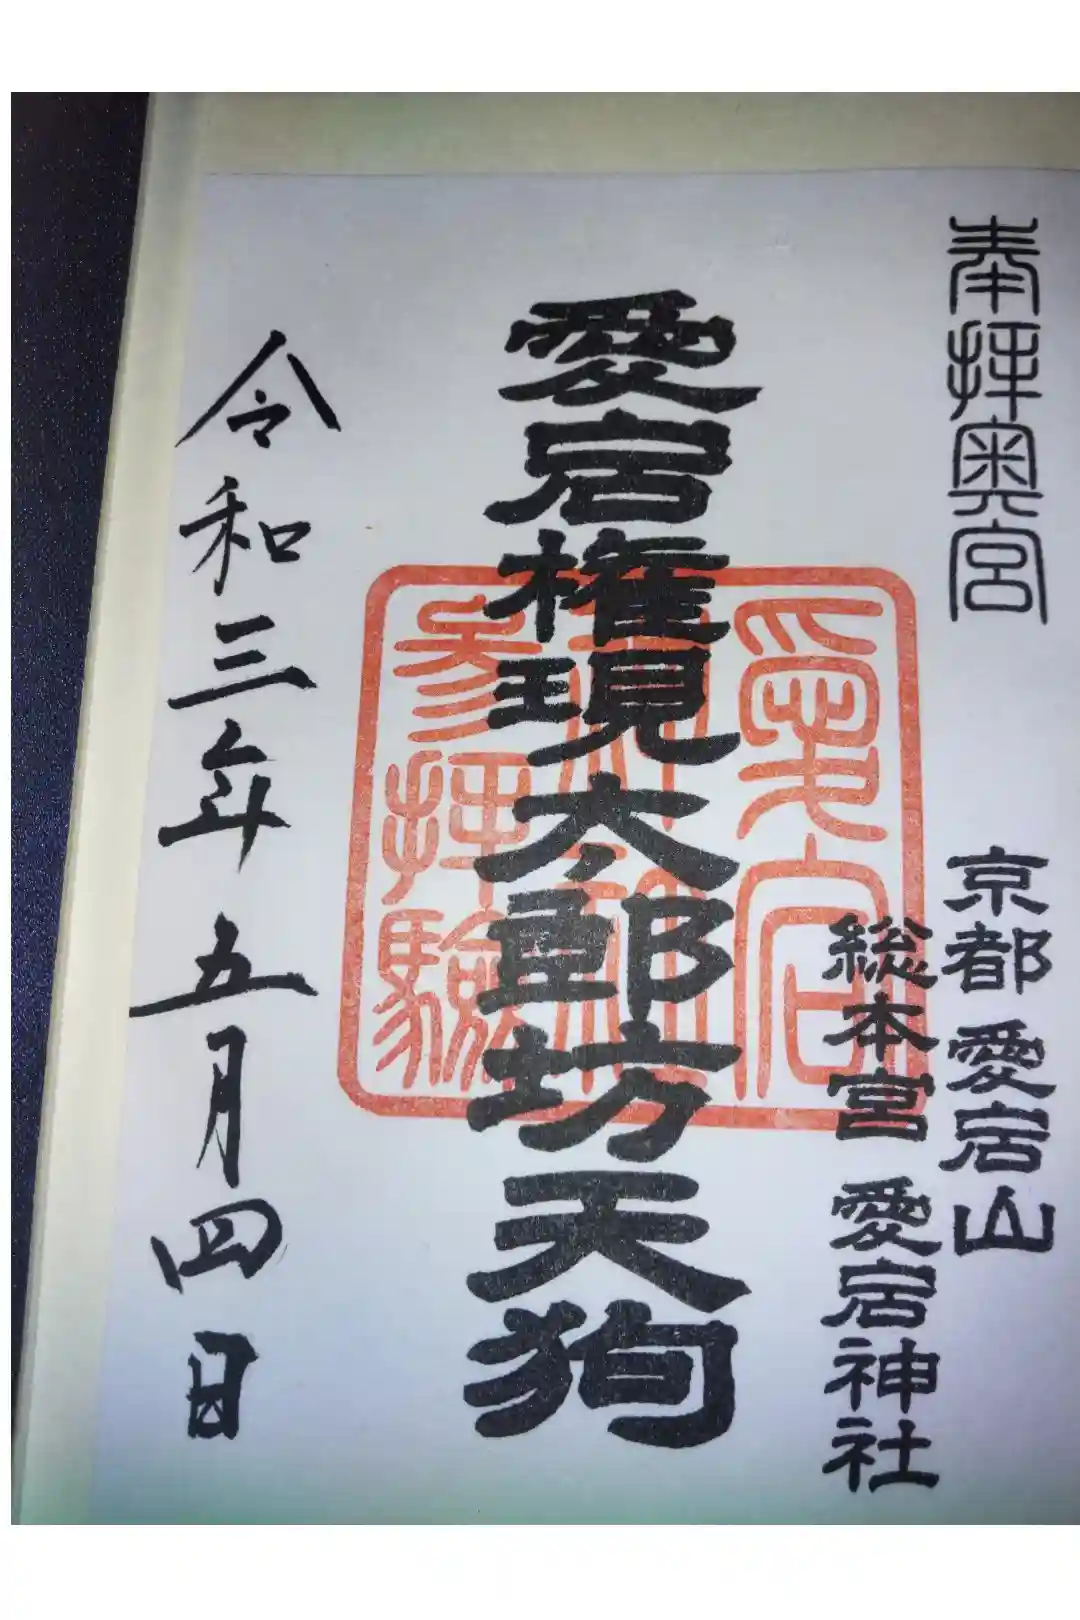 奉拝奥宮
京都 愛宕山
総本宮 愛宕神社
愛宕権現太郎坊天狗
愛宕
神社
参拝験
令和三年 五月四日